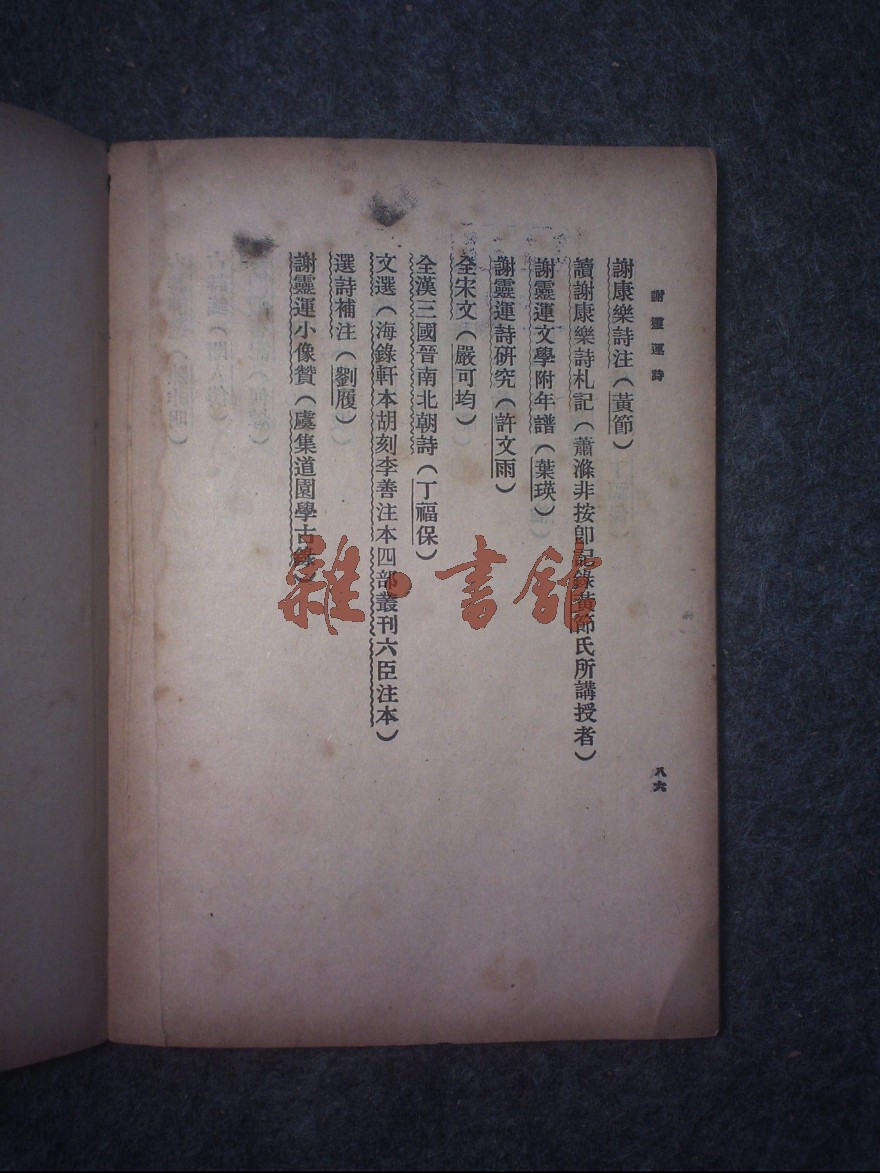 謝靈運詩
八六
謝康樂詩注（黃節）
讀謝康樂詩札記（蕭滌非按卽記錄黃節氏所講授者）
謝靈運文學附年譜（葉瑛）
謝靈運詩研究（許文雨）
全宋文（嚴可均）
全漢三國晉南北朝詩（丁福保）
文選（海錄軒本胡刻李善注本四部叢刊六臣注本）
選詩補注（劉履）
謝靈運小像贊（虞集道園學古錄）
雜·書館